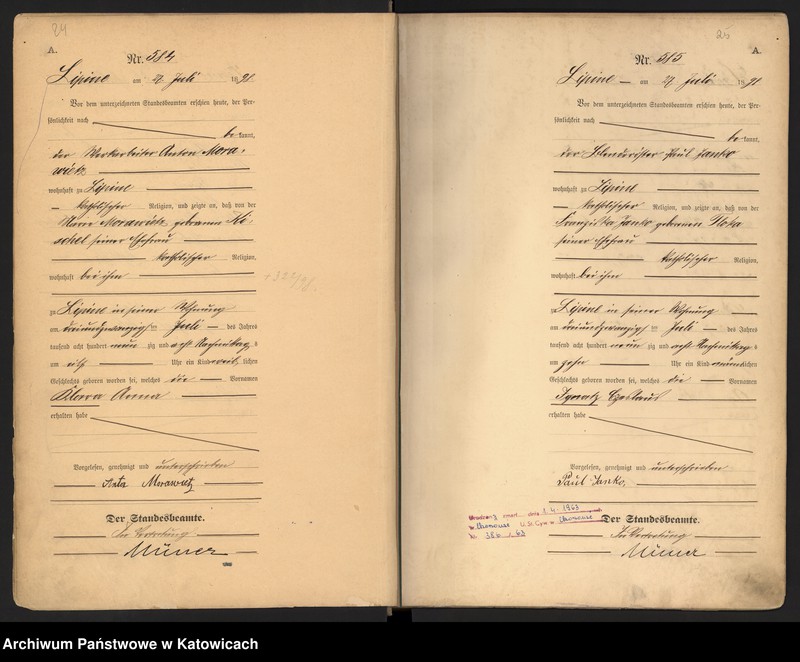 24
A.
Nr. 584
Lipine am 27 Juli 1891
Vor dem unterzeichneten Standesbeamten erschien heute, der Per-
sönlichkeit nach
be kannt,
der Werkarbeiter Anton Mora-
wietz
wohnhaft zu Lipine
katholischer Religion, und zeigte an, daß von der
Morawietz geborenen Ko-
schel seiner Ehefrau
katholischer Religion,
wohnhaft bei ihm
zu Lipine in seiner Wohnung
am dreiundzwanzigsten Juli des Jahres
tausend acht hundert neun zig und Nachmittags
um Uhr ein Kind weib lichen
Geschlechts geboren worden sei, welches die Vornamen
Klara Anna
erhalten habe
Vorgelesen, genehmigt und unterschrieben
Morawietz
Der Standesbeamte.
In Vertretung
25
A.
Nr. 585
Lipine am 27 Juli 1891
Vor dem unterzeichneten Standesbeamten erschien heute, der Per-
sönlichkeit nach
be kannt,
der Paul Janko
wohnhaft zu Lipine
katholischer Religion, und zeigte an, daß von der
Franziska Janko geborenen
seiner Ehefrau
katholischer Religion,
wohnhaft bei ihm
Lipine in seiner Wohnung
am dreiundzwanzigsten Juli des Jahres
tausend acht hundert neun zig und Nachmittags
um zehn Uhr ein Kind männlichen
Geschlechts geboren worden sei, welches die Vornamen
Ignatz Czeslaus
erhalten habe
Vorgelesen, genehmigt und unterschrieben
Paul Janko,
Der Standesbeamte.
In Vertretung
zmarł dnia 1.4.1963
w Chorzowie U.S.C. w Chorzowie
Nr. 386 / 63
Archiwum Państwowe w Katowicach